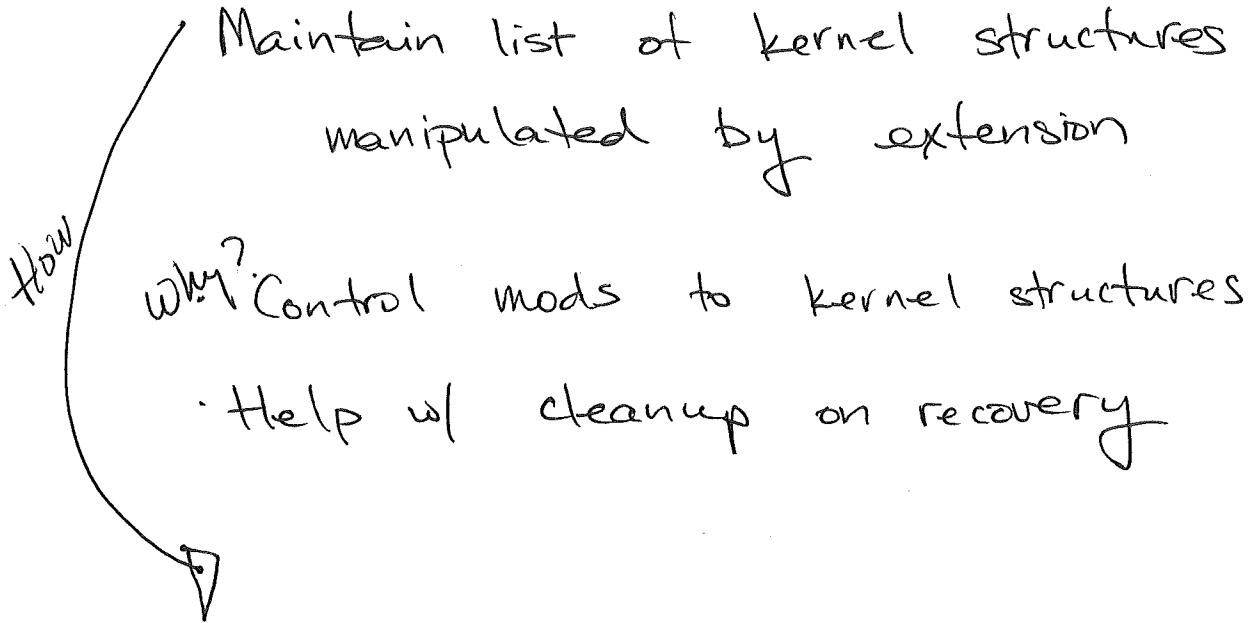 Maintain list of kernel structures
manipulated by extension
How
Why? · Control mods to kernel structures
· Help w/ cleanup on recovery